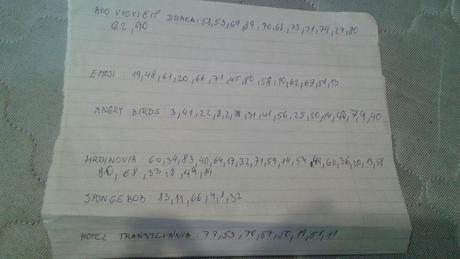 AKO VYCVIČIŤ DRAKA: 58,53,69,89,90,68,75,71,74,29,80
62,90
EMOSI: 19,48,61,20,66,71,45,80,58,10,62,67,51,13
ANGRY BIRDS: 3,41,22,8,2,31,41,56,25,10,14,40,7,9,40
HRDINOVIA 60,34,83,40,64,17,32,71,59,14,54,44,60,36,20,13,58
80,68,33,8,44,14
SPONGEBOB 83,11,66,4,8,32
HOTEL TRANSILVÁNIA: 77,53,70,57,50,19,51,11